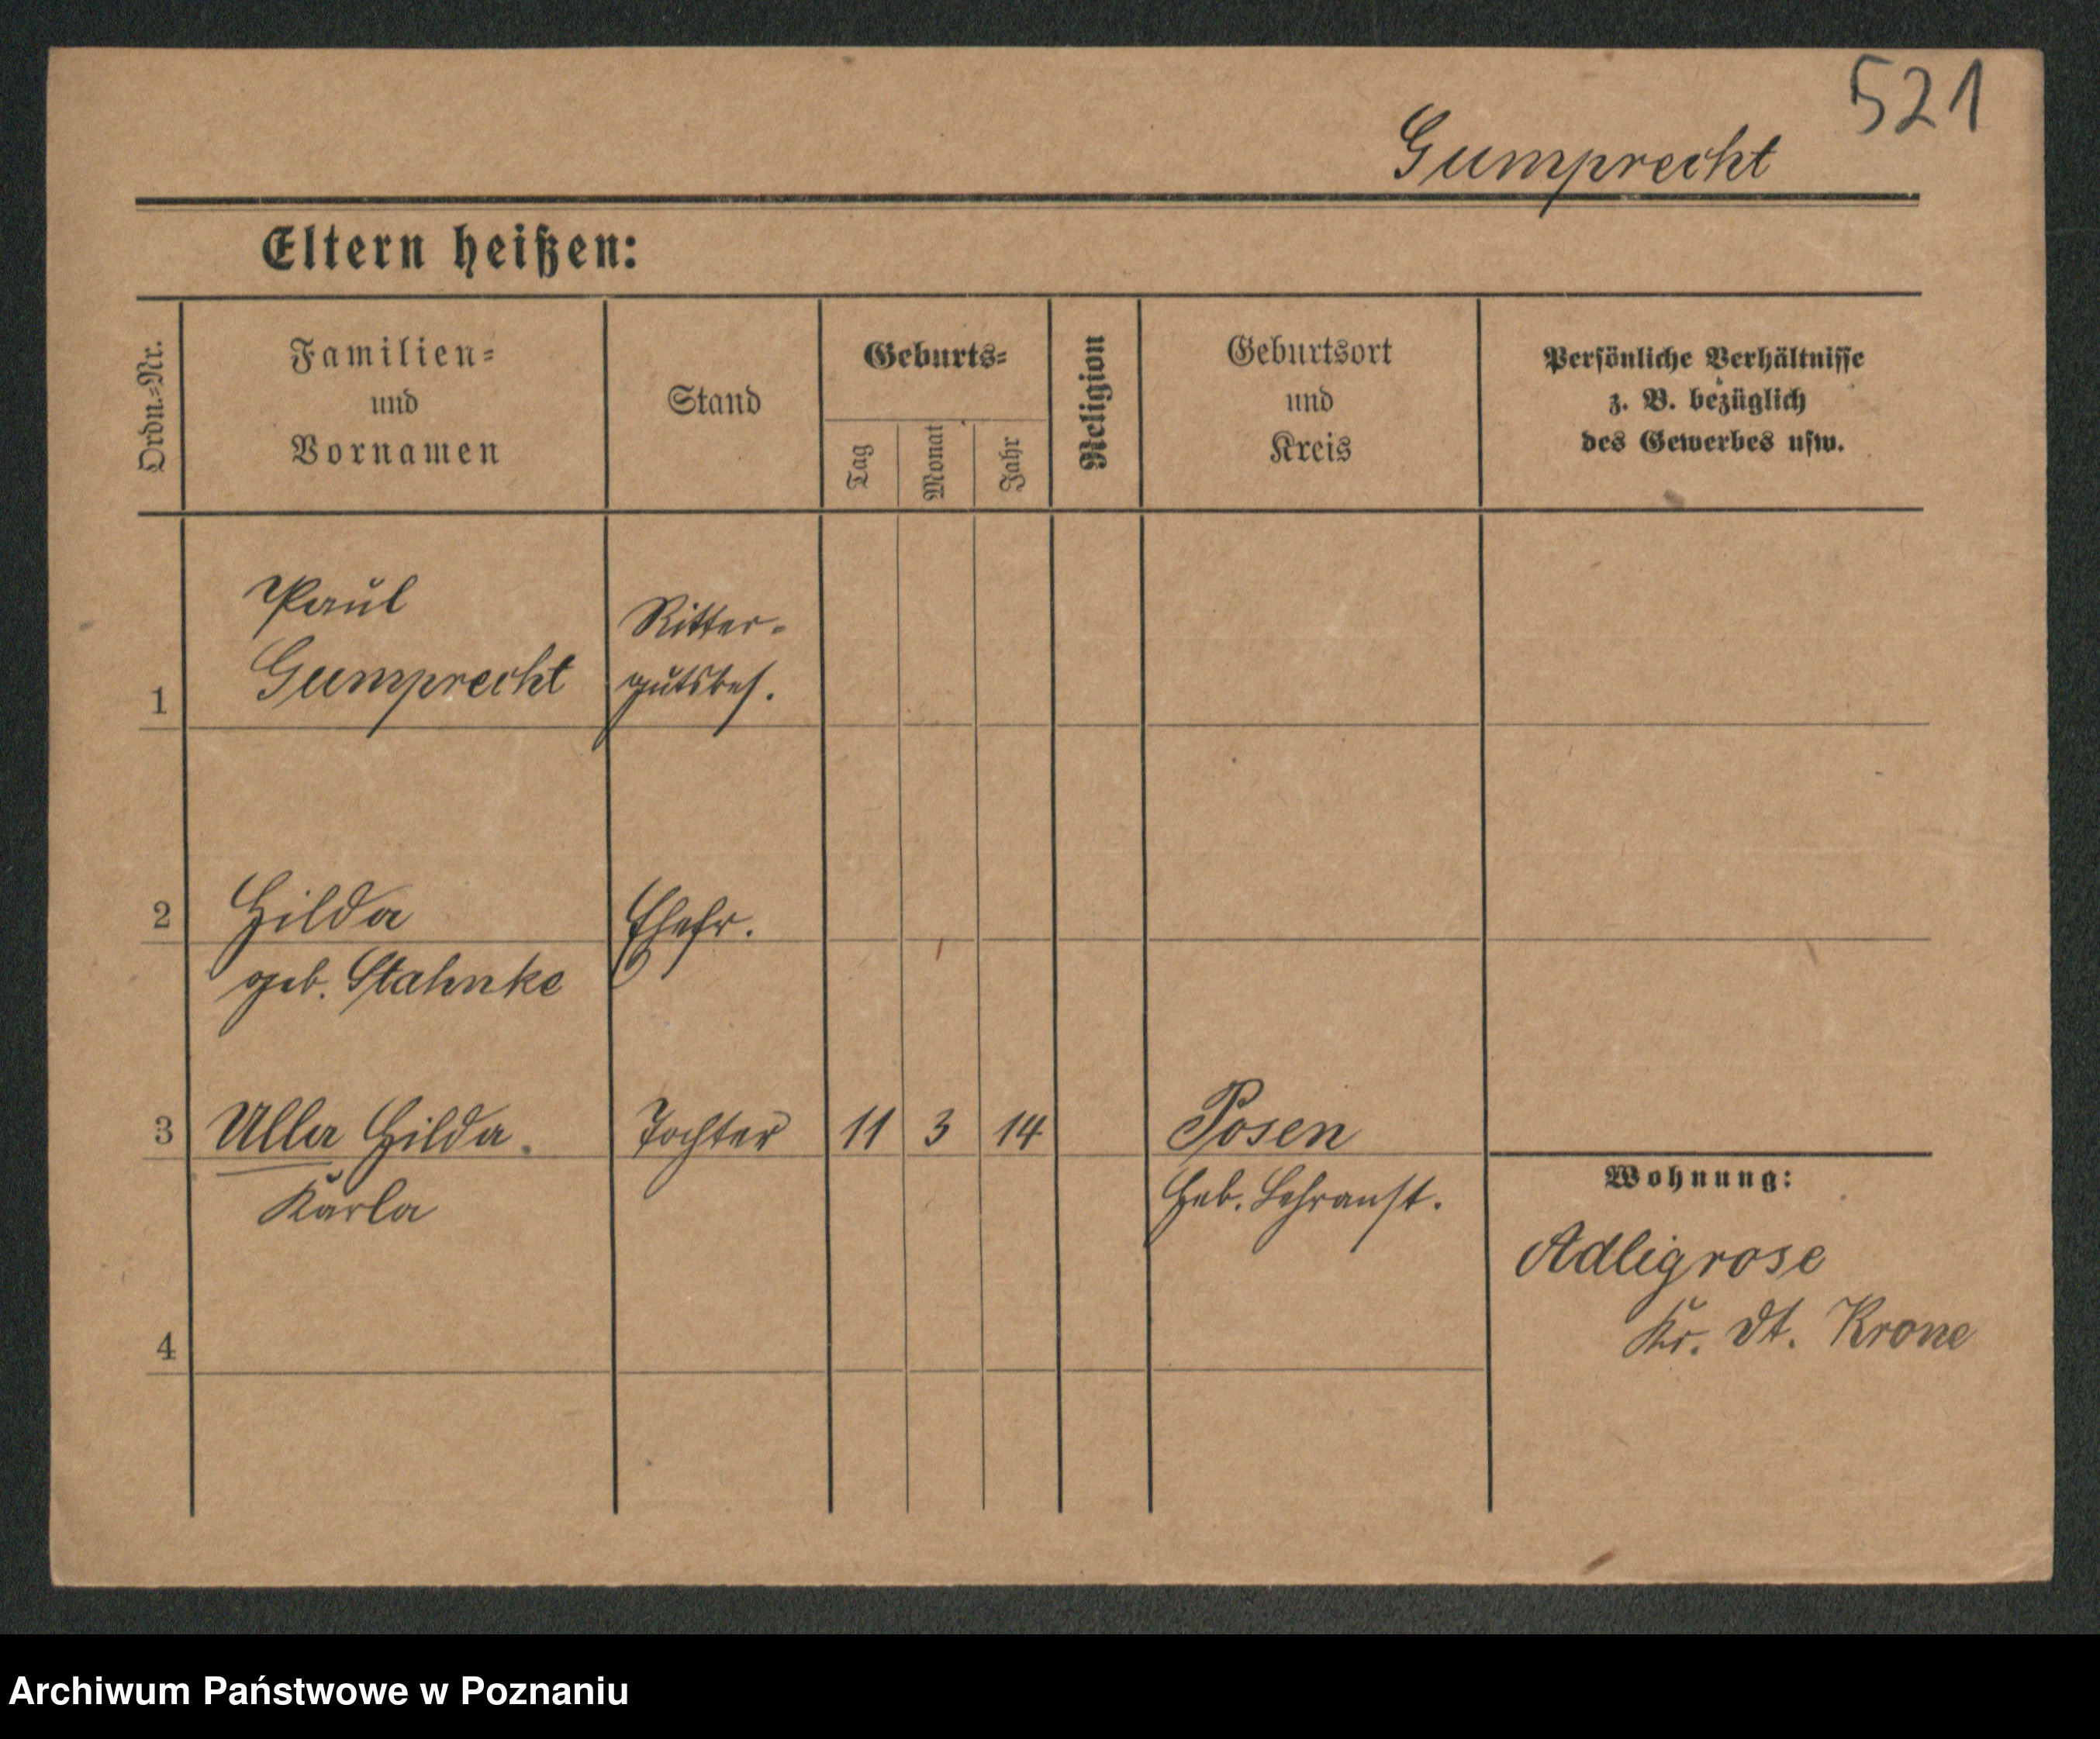 521
Gumprecht
Eltern heißen:
Ordn.-Nr.
Familien-
und
Vornamen
Stand
Geburts-
Tag
Monat
Jahr
Religion
Geburtsort
und
Kreis
Persönliche Verhältnisse
z. B. bezüglich
des Gewerbes usw.
1
Paul
Gumprecht
Ritter-
gutsbes.
2
Hilda
geb. Stahnke
Ehefr.
3
Ulla Hilda
Karla
Tochter
11
3
14
Posen
Heb. Lehranst.
Wohnung:
Adligrose
Kr. Dt. Krone
4
Archiwum Państwowe w Poznaniu